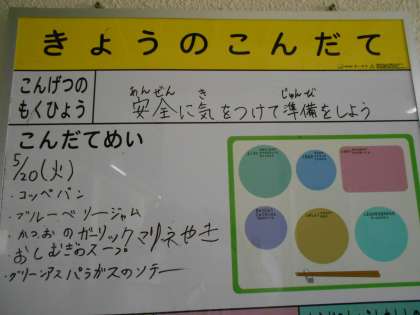 きょうのこんだて
こんげつの
もくひょう
あんぜん き じゅんび
安全に気をつけて準備をしよう
こんだてめい
5/20(火)
・コッペパン
・ブルーベリージャム
・かつおのガーリックマリネやき
おしむぎのスープ
・グリーンアスパラガスのソテー